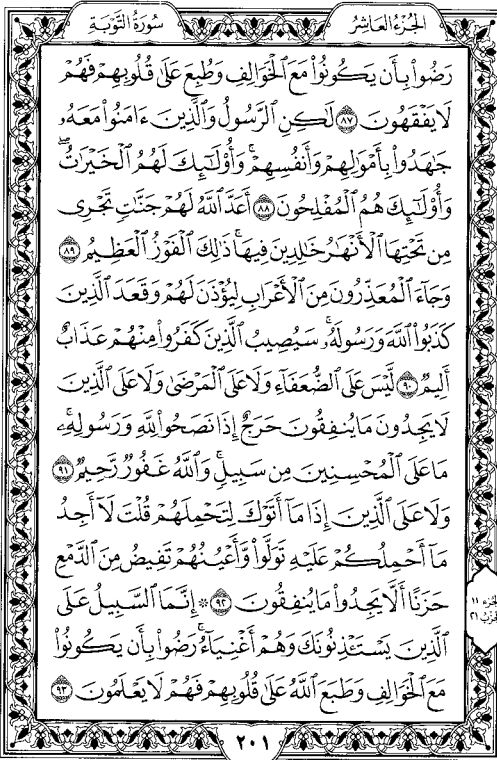 سُورَةُ التَّوْبَةِ
الجُزْءُ العَاشِرُ
رَضُواْ بِأَن يَكُونُواْ مَعَ ٱلْخَوَالِفِ وَطُبِعَ عَلَىٰ قُلُوبِهِمْ فَهُمْ
لَا يَفْقَهُونَ ٨٧ لَٰكِنِ ٱلرَّسُولُ وَٱلَّذِينَ ءَامَنُواْ مَعَهُۥ
جَٰهَدُواْ بِأَمْوَٰلِهِمْ وَأَنفُسِهِمْ ۚ وَأُوْلَٰٓئِكَ لَهُمُ ٱلْخَيْرَٰتُ ۖ
وَأُوْلَٰٓئِكَ هُمُ ٱلْمُفْلِحُونَ ٨٨ أَعَدَّ ٱللَّهُ لَهُمْ جَنَّٰتٍ تَجْرِى
مِن تَحْتِهَا ٱلْأَنْهَٰرُ خَٰلِدِينَ فِيهَا ۚ ذَٰلِكَ ٱلْفَوْزُ ٱلْعَظِيمُ ٨٩
وَجَآءَ ٱلْمُعَذِّرُونَ مِنَ ٱلْأَعْرَابِ لِيُؤْذَنَ لَهُمْ وَقَعَدَ ٱلَّذِينَ
كَذَبُواْ ٱللَّهَ وَرَسُولَهُۥ ۚ سَيُصِيبُ ٱلَّذِينَ كَفَرُواْ مِنْهُمْ عَذَابٌ
أَلِيمٌ ٩٠ لَّيْسَ عَلَى ٱلضُّعَفَآءِ وَلَا عَلَى ٱلْمَرْضَىٰ وَلَا عَلَى ٱلَّذِينَ
لَا يَجِدُونَ مَا يُنفِقُونَ حَرَجٌ إِذَا نَصَحُواْ لِلَّهِ وَرَسُولِهِۦ ۚ
مَا عَلَى ٱلْمُحْسِنِينَ مِن سَبِيلٍ ۚ وَٱللَّهُ غَفُورٌ رَّحِيمٌ ٩١
وَلَا عَلَى ٱلَّذِينَ إِذَا مَآ أَتَوْكَ لِتَحْمِلَهُمْ قُلْتَ لَآ أَجِدُ
مَآ أَحْمِلُكُمْ عَلَيْهِ تَوَلَّواْ وَّأَعْيُنُهُمْ تَفِيضُ مِنَ ٱلدَّمْعِ
حَزَنًا أَلَّا يَجِدُواْ مَا يُنفِقُونَ ٩٢ ۞ إِنَّمَا ٱلسَّبِيلُ عَلَى
ٱلَّذِينَ يَسْتَـْٔذِنُونَكَ وَهُمْ أَغْنِيَآءُ ۚ رَضُواْ بِأَن يَكُونُواْ
مَعَ ٱلْخَوَالِفِ وَطَبَعَ ٱللَّهُ عَلَىٰ قُلُوبِهِمْ فَهُمْ لَا يَعْلَمُونَ ٩٣
الجزء ١١
الحزب ٢١
٢٠١